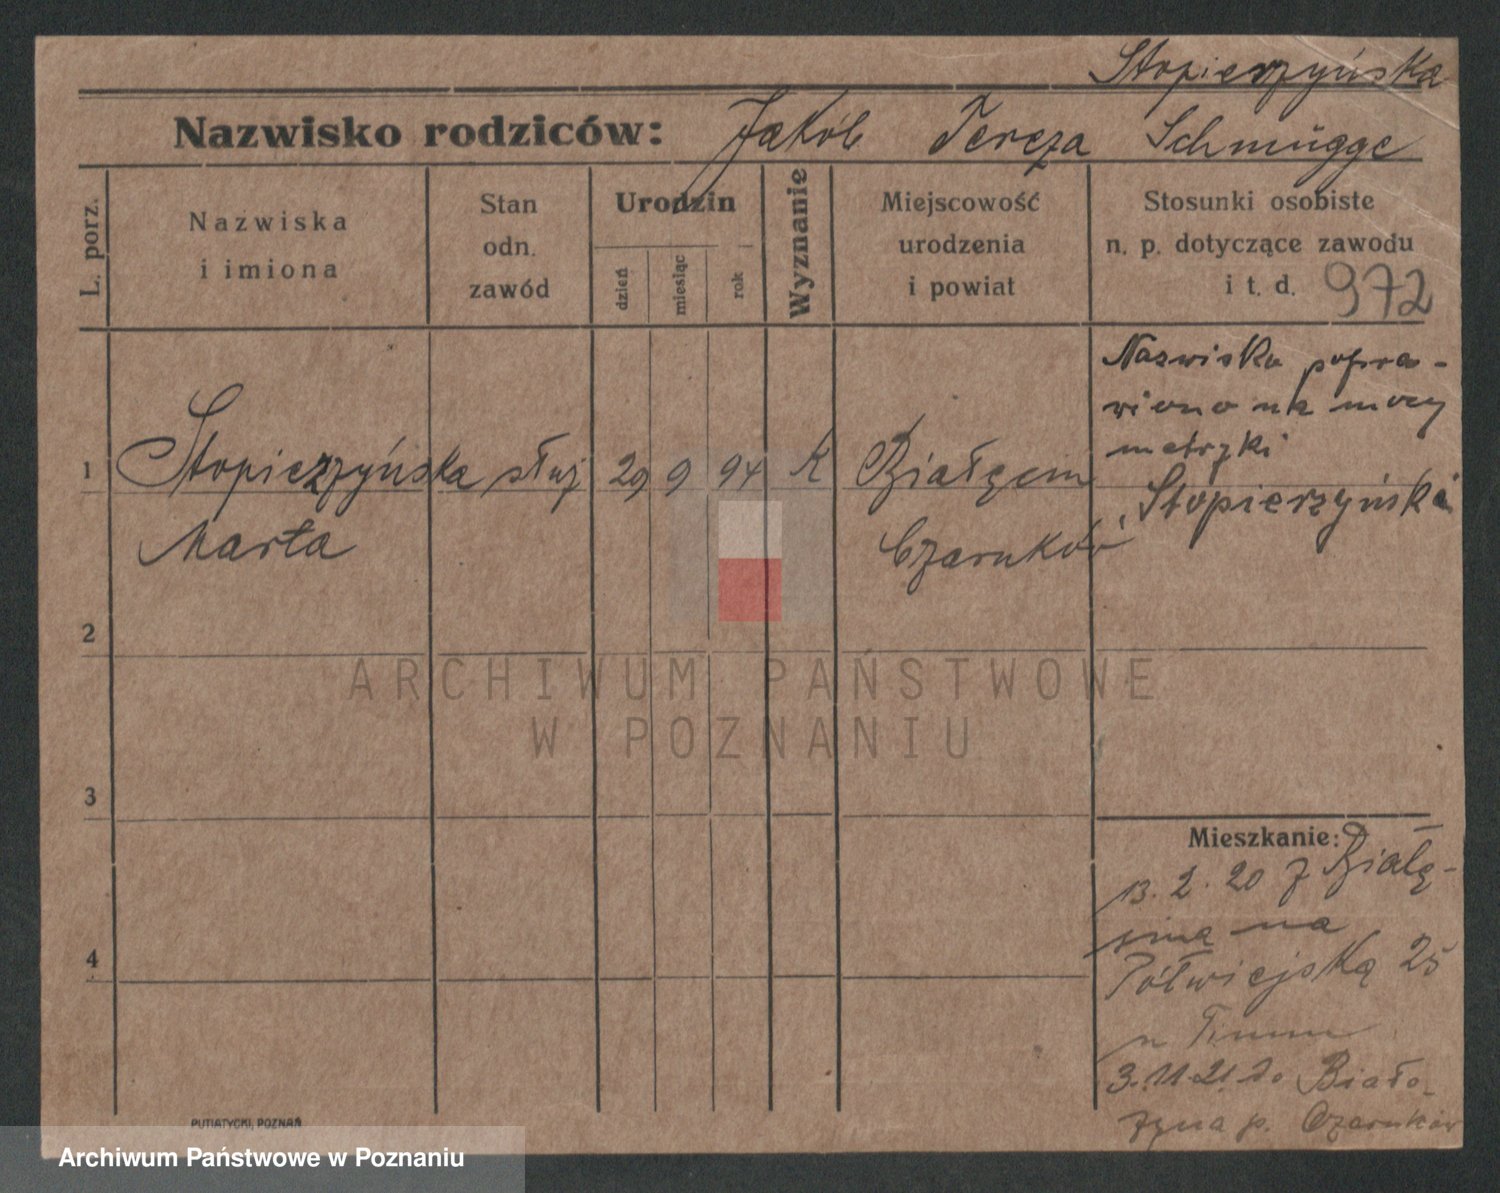 Stopierzyńska
Nazwisko rodziców: Jakób Tereza Schmügge
L. porz.
Nazwiska
i imiona
Stan
odn.
zawód
Urodzin
dzień
miesiąc
rok
Wyznanie
Miejscowość
urodzenia
i powiat
Stosunki osobiste
n. p. dotyczące zawodu
i t. d. 972
1 Stopierzyńska służ 29 9 94 K Białężin
Marta
Czarnków
Nazwisko popra-
wiono na mocy
metryki
Stopierzyńska
2
3
4
ARCHIWUM PAŃSTWOWE
W POZNANIU
Mieszkanie:
13. 2. 20 z Białę-
na
Półwiejską 25
3.11.21 do Biało-
p. Czarnków
PUTIATYCKI, POZNAŃ
Archiwum Państwowe w Poznaniu